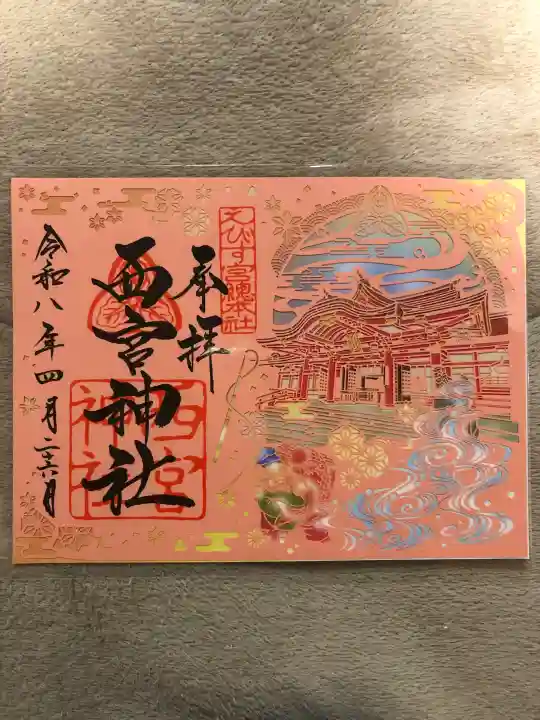 奉拝
えびす宮総本社
西宮神社
西宮
神社
令和八年四月二十六日